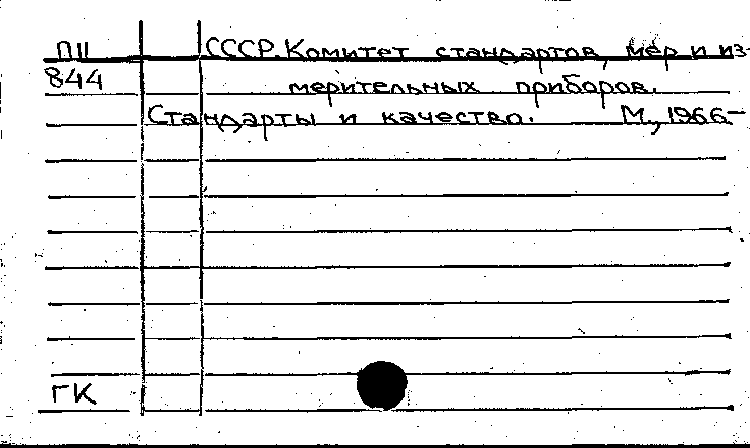 ПЦ СССР. Комитет стандартов, мер и из-
844 мерительных приборов.
Стандарты и качество. М., 1966–
ГК